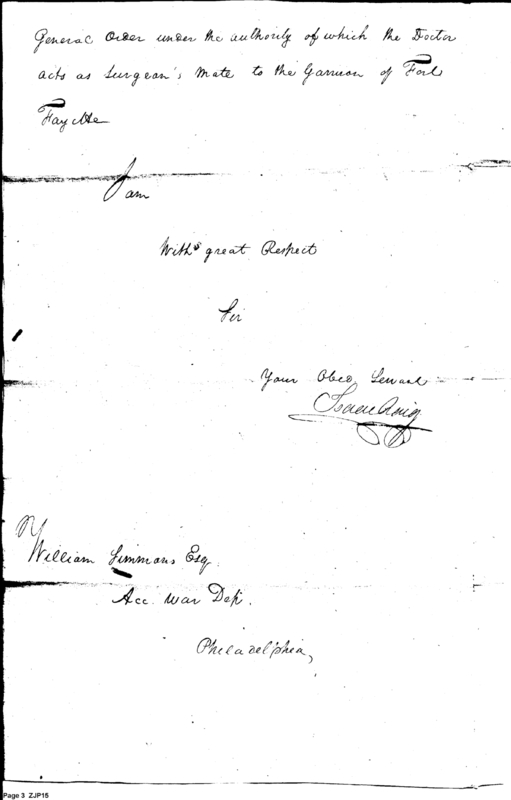 General Order under the authority of which the Doctor
acts as Surgeon's Mate to the Garrison of Fort
Fayette
I am
With great Respect
Sir
Your Obed Servant
Isaac Craig
William Simmons Esq
Acc. War Dept.
Philadelphia,
Page 3 ZJP15